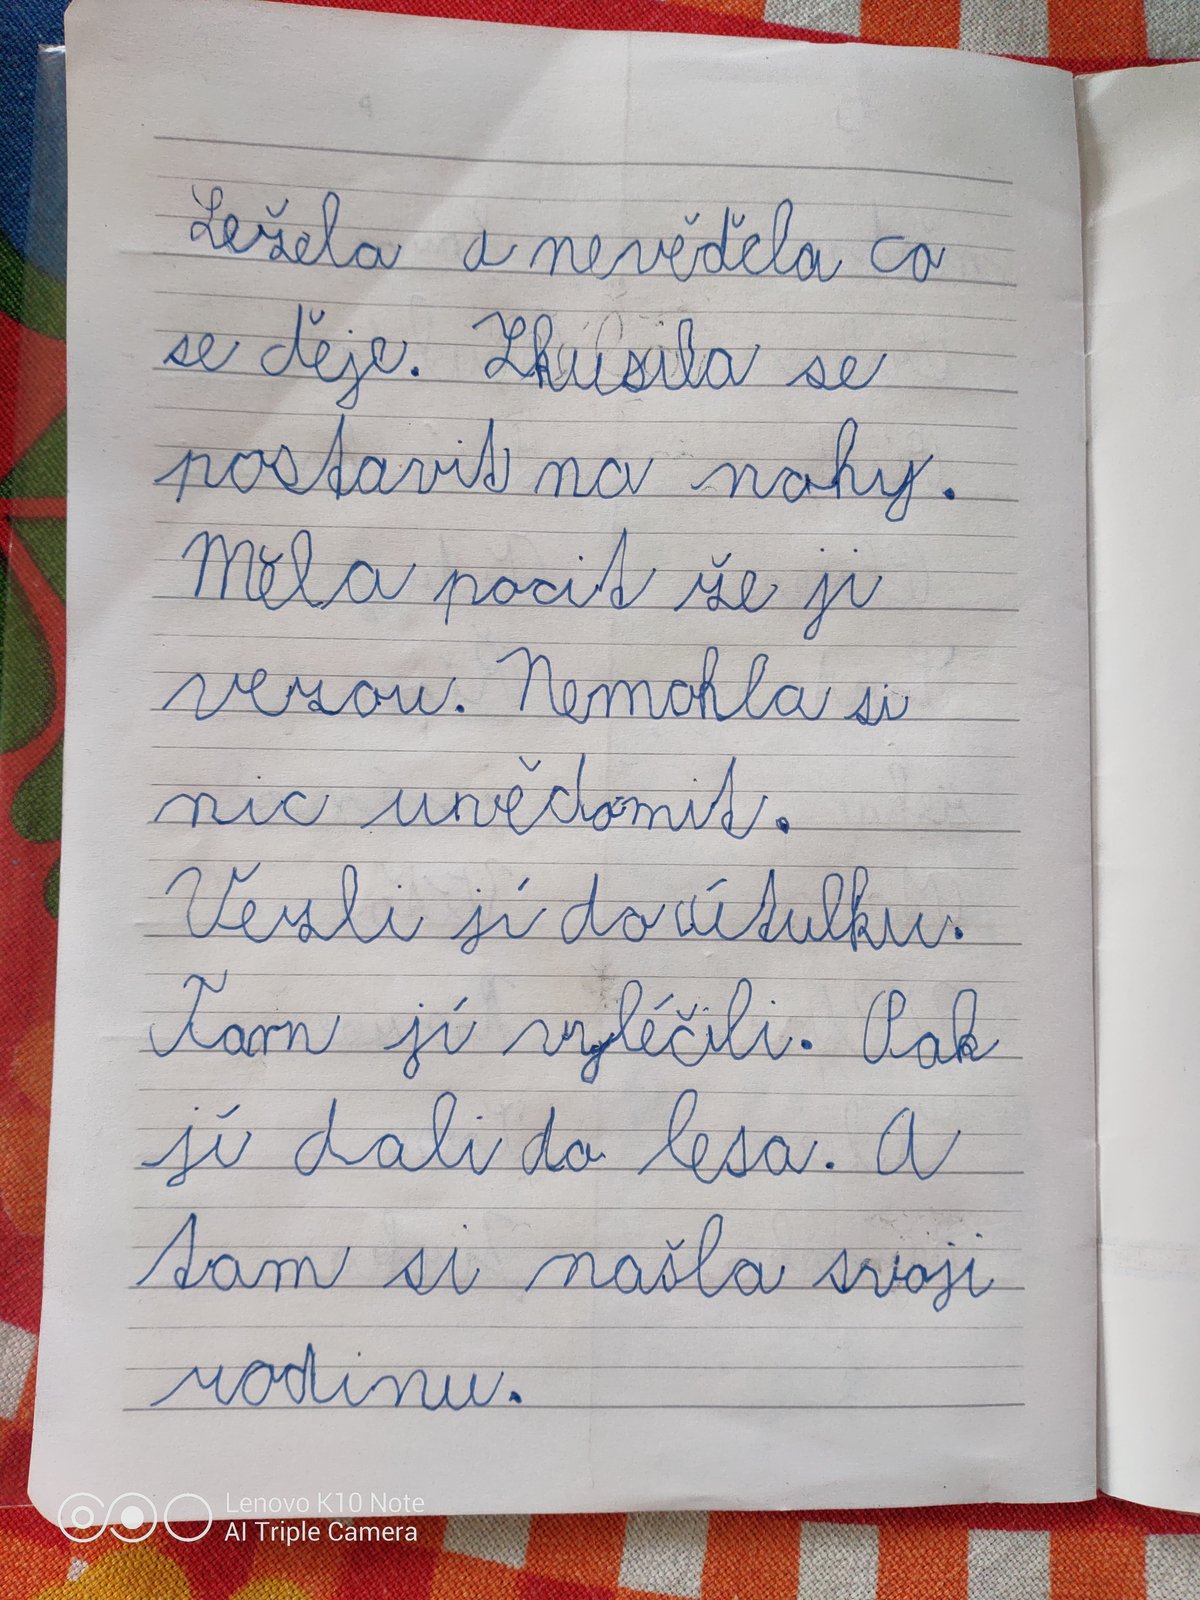 Ležela a nevěděla co
se děje. Zkusila se
postavit na nohy.
Měla pocit že ji
vezou. Nemohla si
nic uvědomit.
Vezli jí do útulku.
Tam jí vyléčili. Pak
jí dali do lesa. A
tam si našla svoji
rodinu.
Lenovo K10 Note
AI Triple Camera